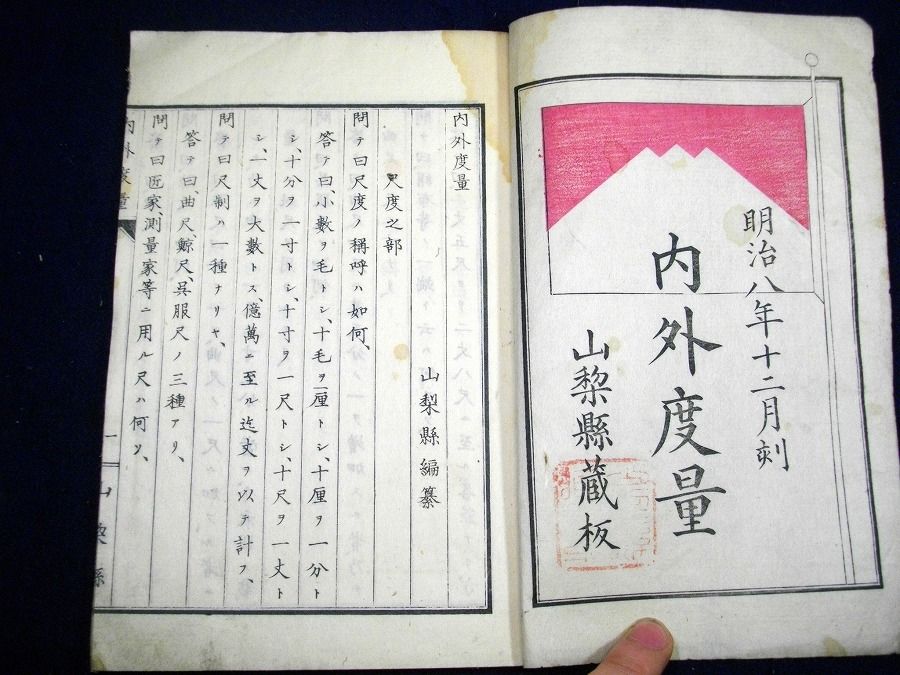 明治八年十二月刻
内外度量
山梨縣蔵板
内外度量
山梨縣編纂
尺度之部
問テ曰尺度ノ稱呼ハ如何、
答テ曰、小數ヲ毛トシ、十毛ヲ一厘トシ、十厘ヲ一分ト
シ、十分ヲ一寸トシ、十寸ヲ一尺トシ、十尺ヲ一丈ト
シ、一丈ヲ大數トス、億萬ニ至ル迄丈ヲ以テ計フ、
問テ曰尺制ハ一種ナリヤ、
答テ曰、曲尺、鯨尺、呉服尺ノ三種アリ、
問テ曰匠家、測量家等ニ用ル尺ハ何ソ、
内外度量
一
山梨縣